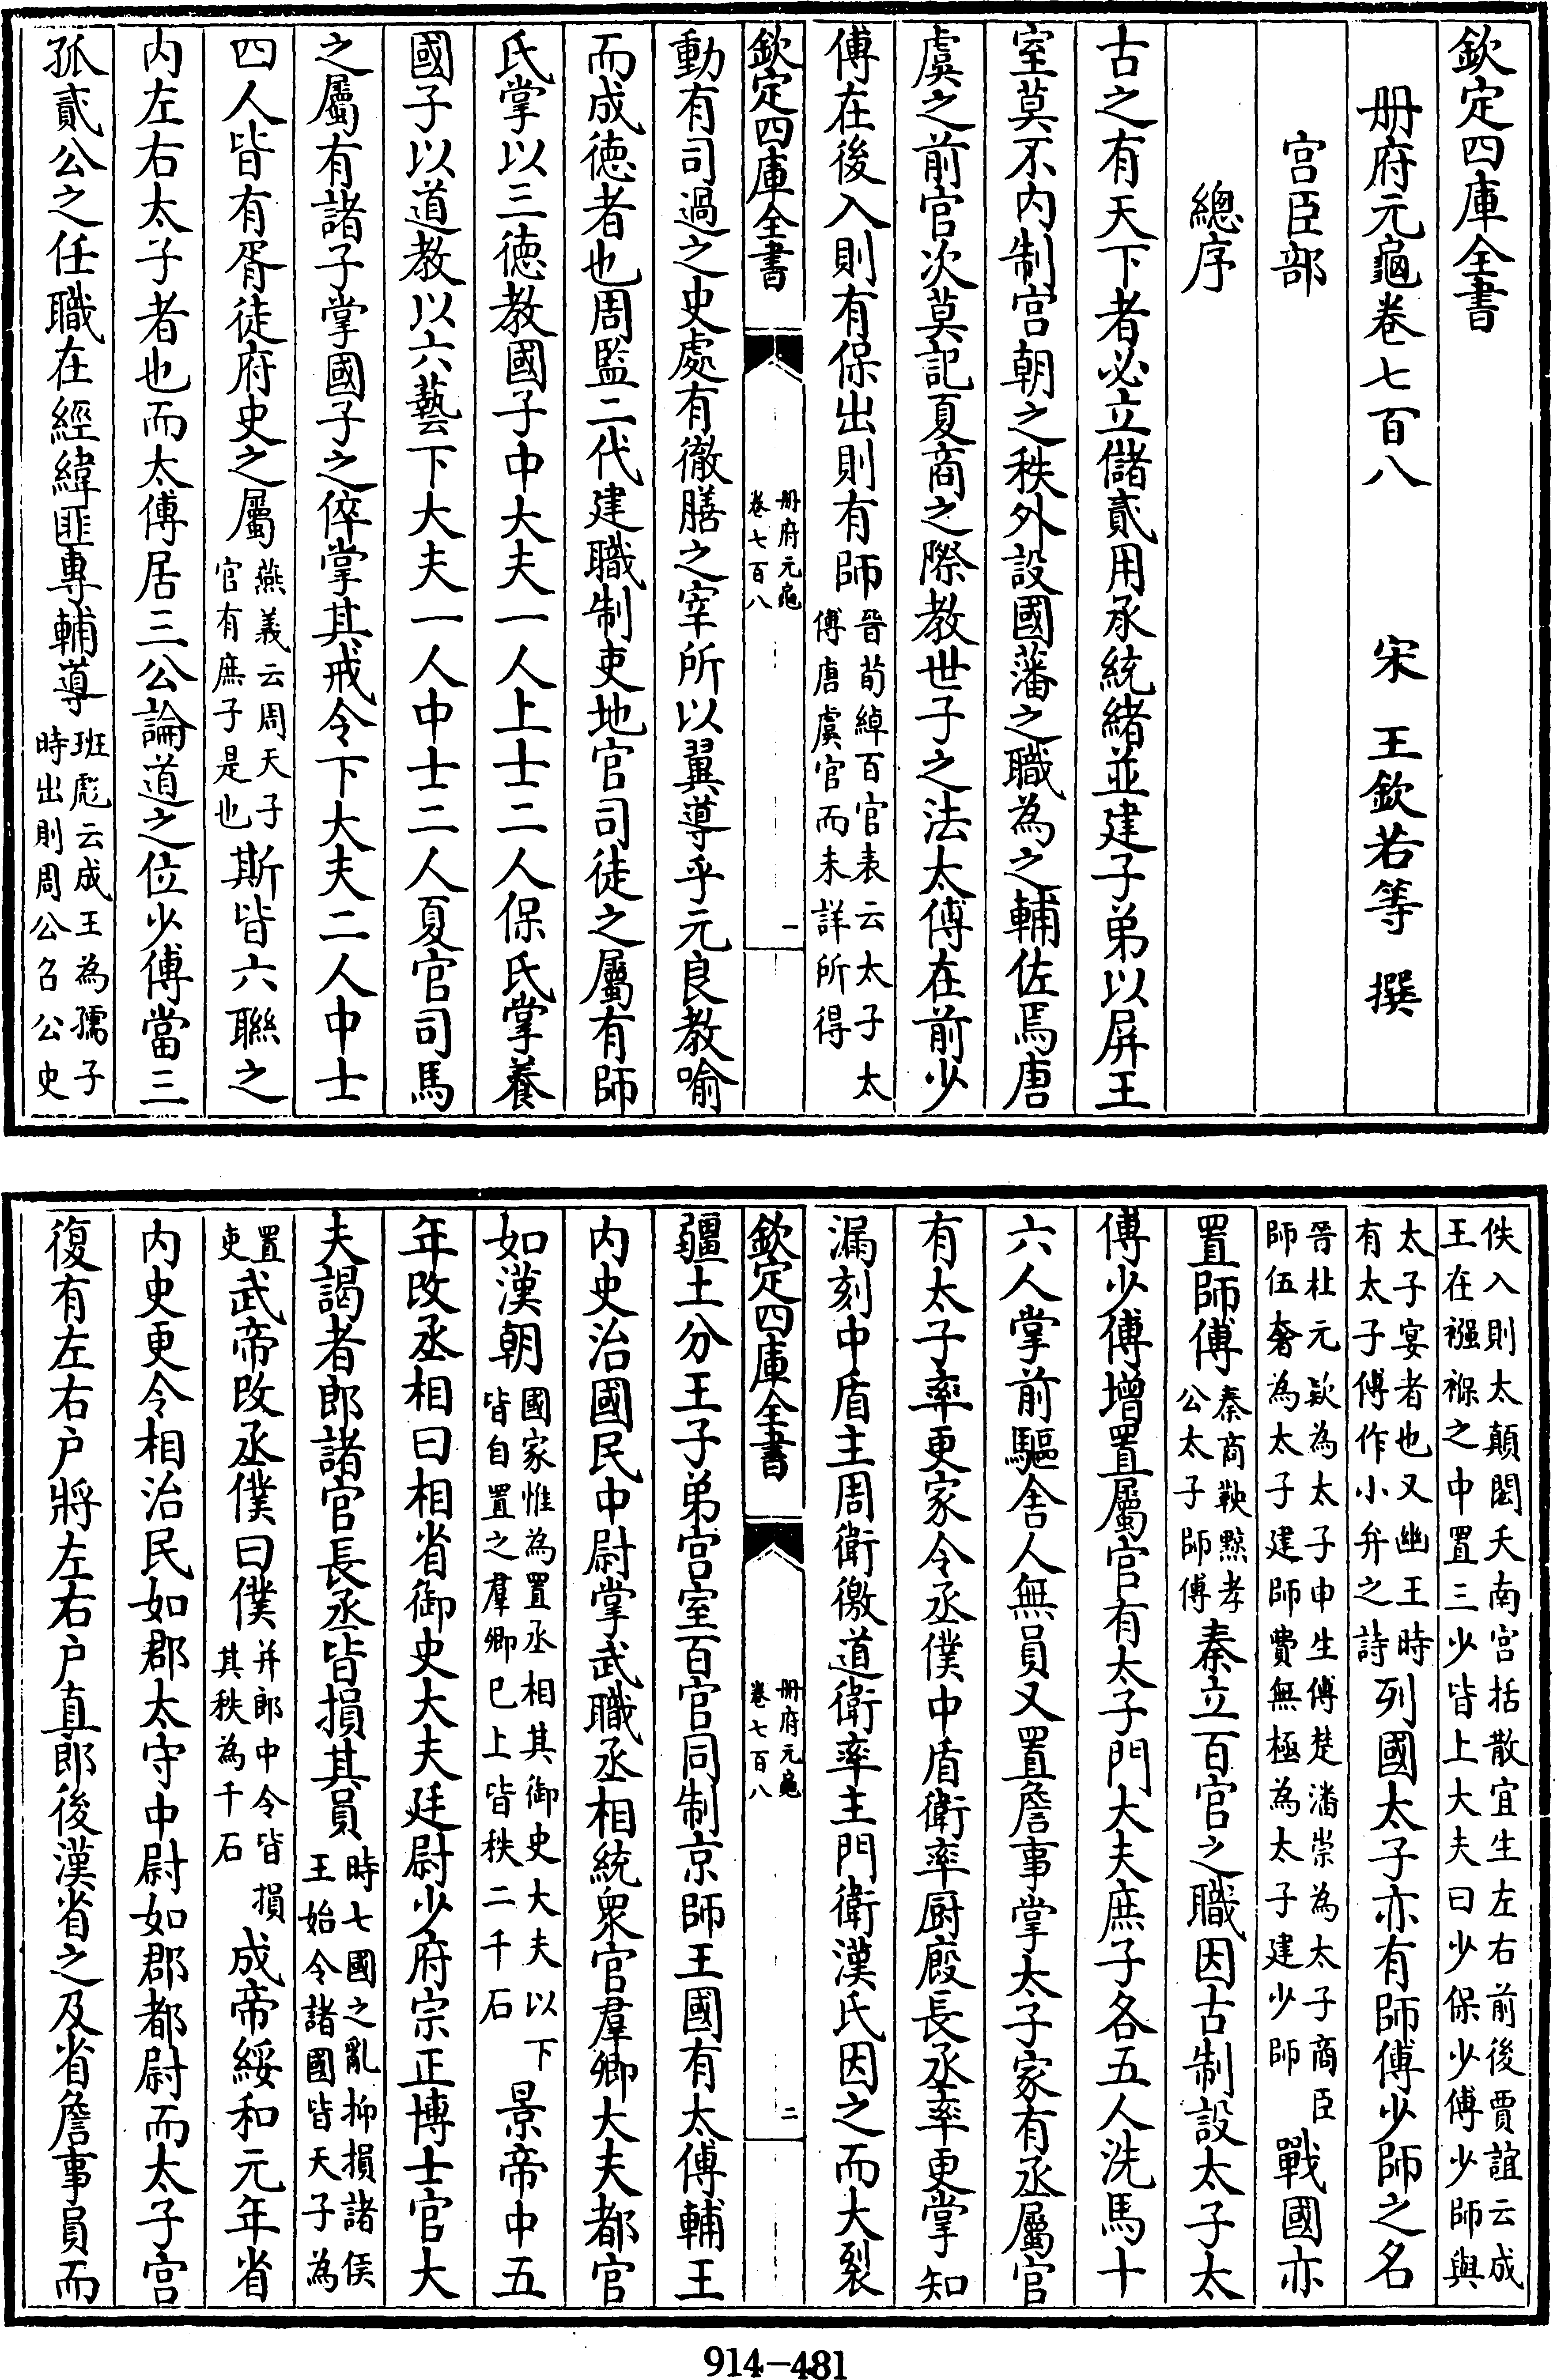 欽定四庫全書
册府元龜卷七百八　宋　王欽若等　撰
宫臣部
總序
古之有天下者必立儲貳用承統緒並建子弟以屏王
室莫不内制宫朝之秩外設國藩之職為之輔佐焉唐
虞之前官次莫記夏商之際教世子之法太傅在前少
傅在後入則有保出則有師晉荀綽百官表云太子太
傅唐虞官而未詳所得
欽定四庫全書
册府元龜
卷七百八
一
動有司過之史處有徹膳之宰所以翼導乎元良教喻
而成徳者也周監二代建職制吏地官司徒之屬有師
氏掌以三徳教國子中大夫一人上士二人保氏掌養
國子以道教以六藝下大夫一人中士二人夏官司馬
之屬有諸子掌國子之倅掌其戒令下大夫二人中士
四人皆有胥徒府史之屬燕義云周天子
官有庶子是也斯皆六聯之
内左右太子者也而太傅居三公論道之位少傅當三
孤貳公之任職在經緯匪專輔導班彪云成王為孺子
時出則周公召公史
佚入則太顛閎夭南宫括散宜生左右前後賈誼云成
王在襁褓之中置三少皆上大夫曰少保少傅少師與
太子宴者也又幽王時
有太子傅作小弁之詩列國太子亦有師傅少師之名
晉杜元欵為太子申生傅楚潘崇為太子商臣
師伍奢為太子建師費無極為太子建少師戰國亦
置師傅秦商鞅黥孝
公太子師傅秦立百官之職因古制設太子太
傅少傅增置屬官有太子門大夫庶子各五人洗馬十
六人掌前驅舍人無員又置詹事掌太子家有丞屬官
有太子率更家令丞僕中盾衛率厨廏長丞率更掌知
漏刻中盾主周衛徼道衛率主門衛漢氏因之而大裂
欽定四庫全書
册府元龜
卷七百八
二
疆土分王子弟宫室百官同制京師王國有太傅輔王
内史治國民中尉掌武職丞相統衆官羣卿大夫都官
如漢朝國家惟為置丞相其御史大夫以下
皆自置之羣卿已上皆秩二千石景帝中五
年改丞相曰相省御史大夫廷尉少府宗正博士官大
夫謁者郎諸官長丞皆損其員時七國之亂抑損諸侯
王始令諸國皆天子為
置
吏武帝改丞僕曰僕并郎中令皆損
其秩為千石成帝綏和元年省
内史更令相治民如郡太守中尉如郡都尉而太子宫
復有左右户將左右户直郎後漢省之及省詹事員而
914-481